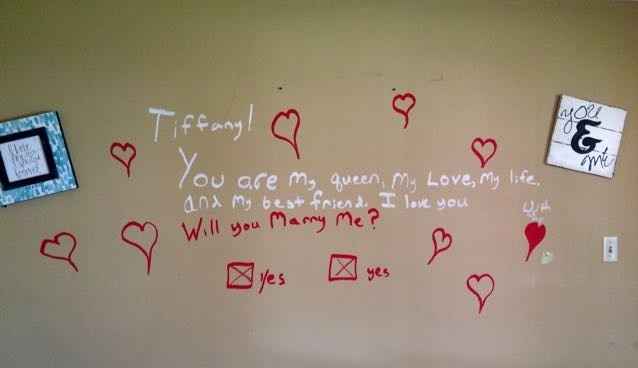 Tiffany!
You are my queen, My Love, My life,
and my best friend. I love you
Will you Marry Me?
Yes
yes
you
&
me